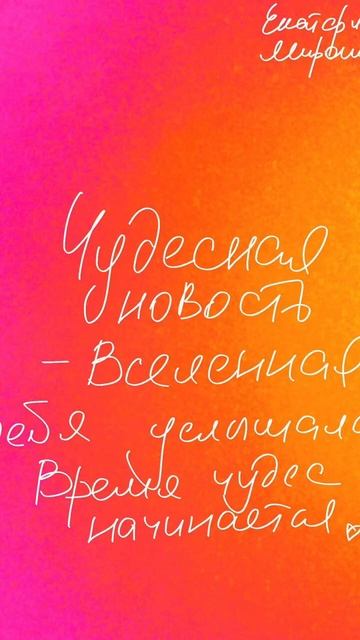 Екатери
Мирош
Чудесная
новость
– Вселенная
тебя услышала
Время чудес
начинается